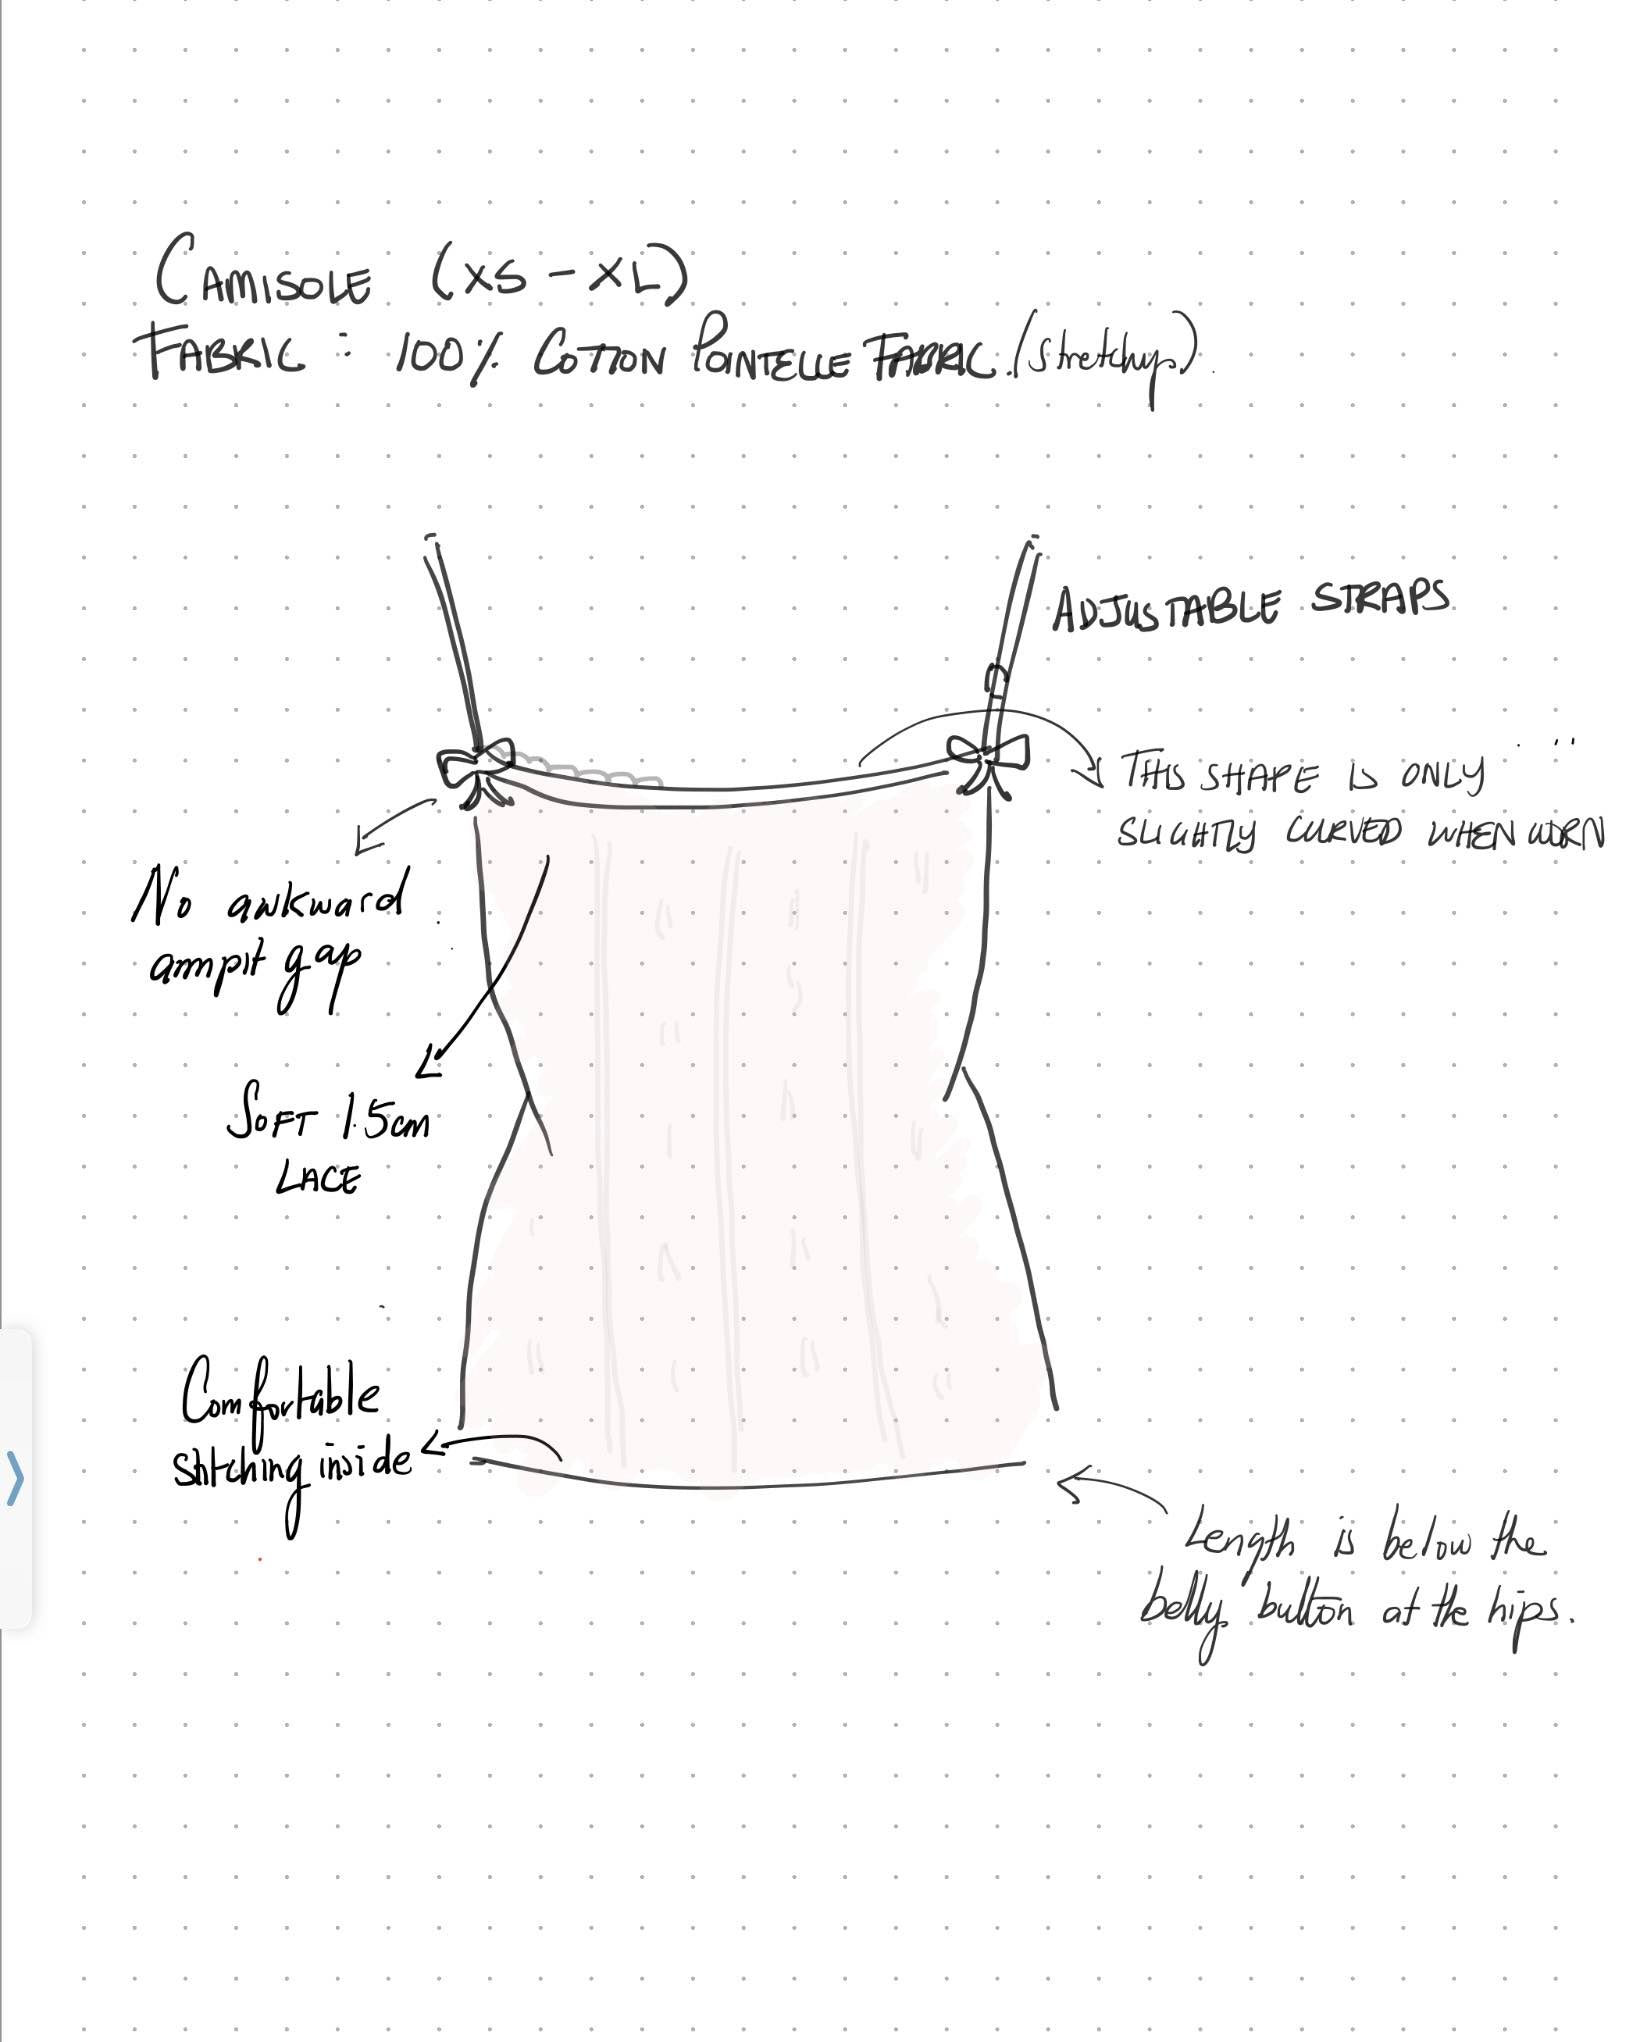 CAMISOLE (XS - XL)
FABRIC : 100% COTTON POINTELLE FABRIC. (stretchy).
ADJUSTABLE STRAPS
THIS SHAPE IS ONLY
SLIGHTLY CURVED WHEN WORN
No awkward
armpit gap
SOFT 1.5cm
LACE
Comfortable
stitching inside
Length is below the
belly button at the hips.